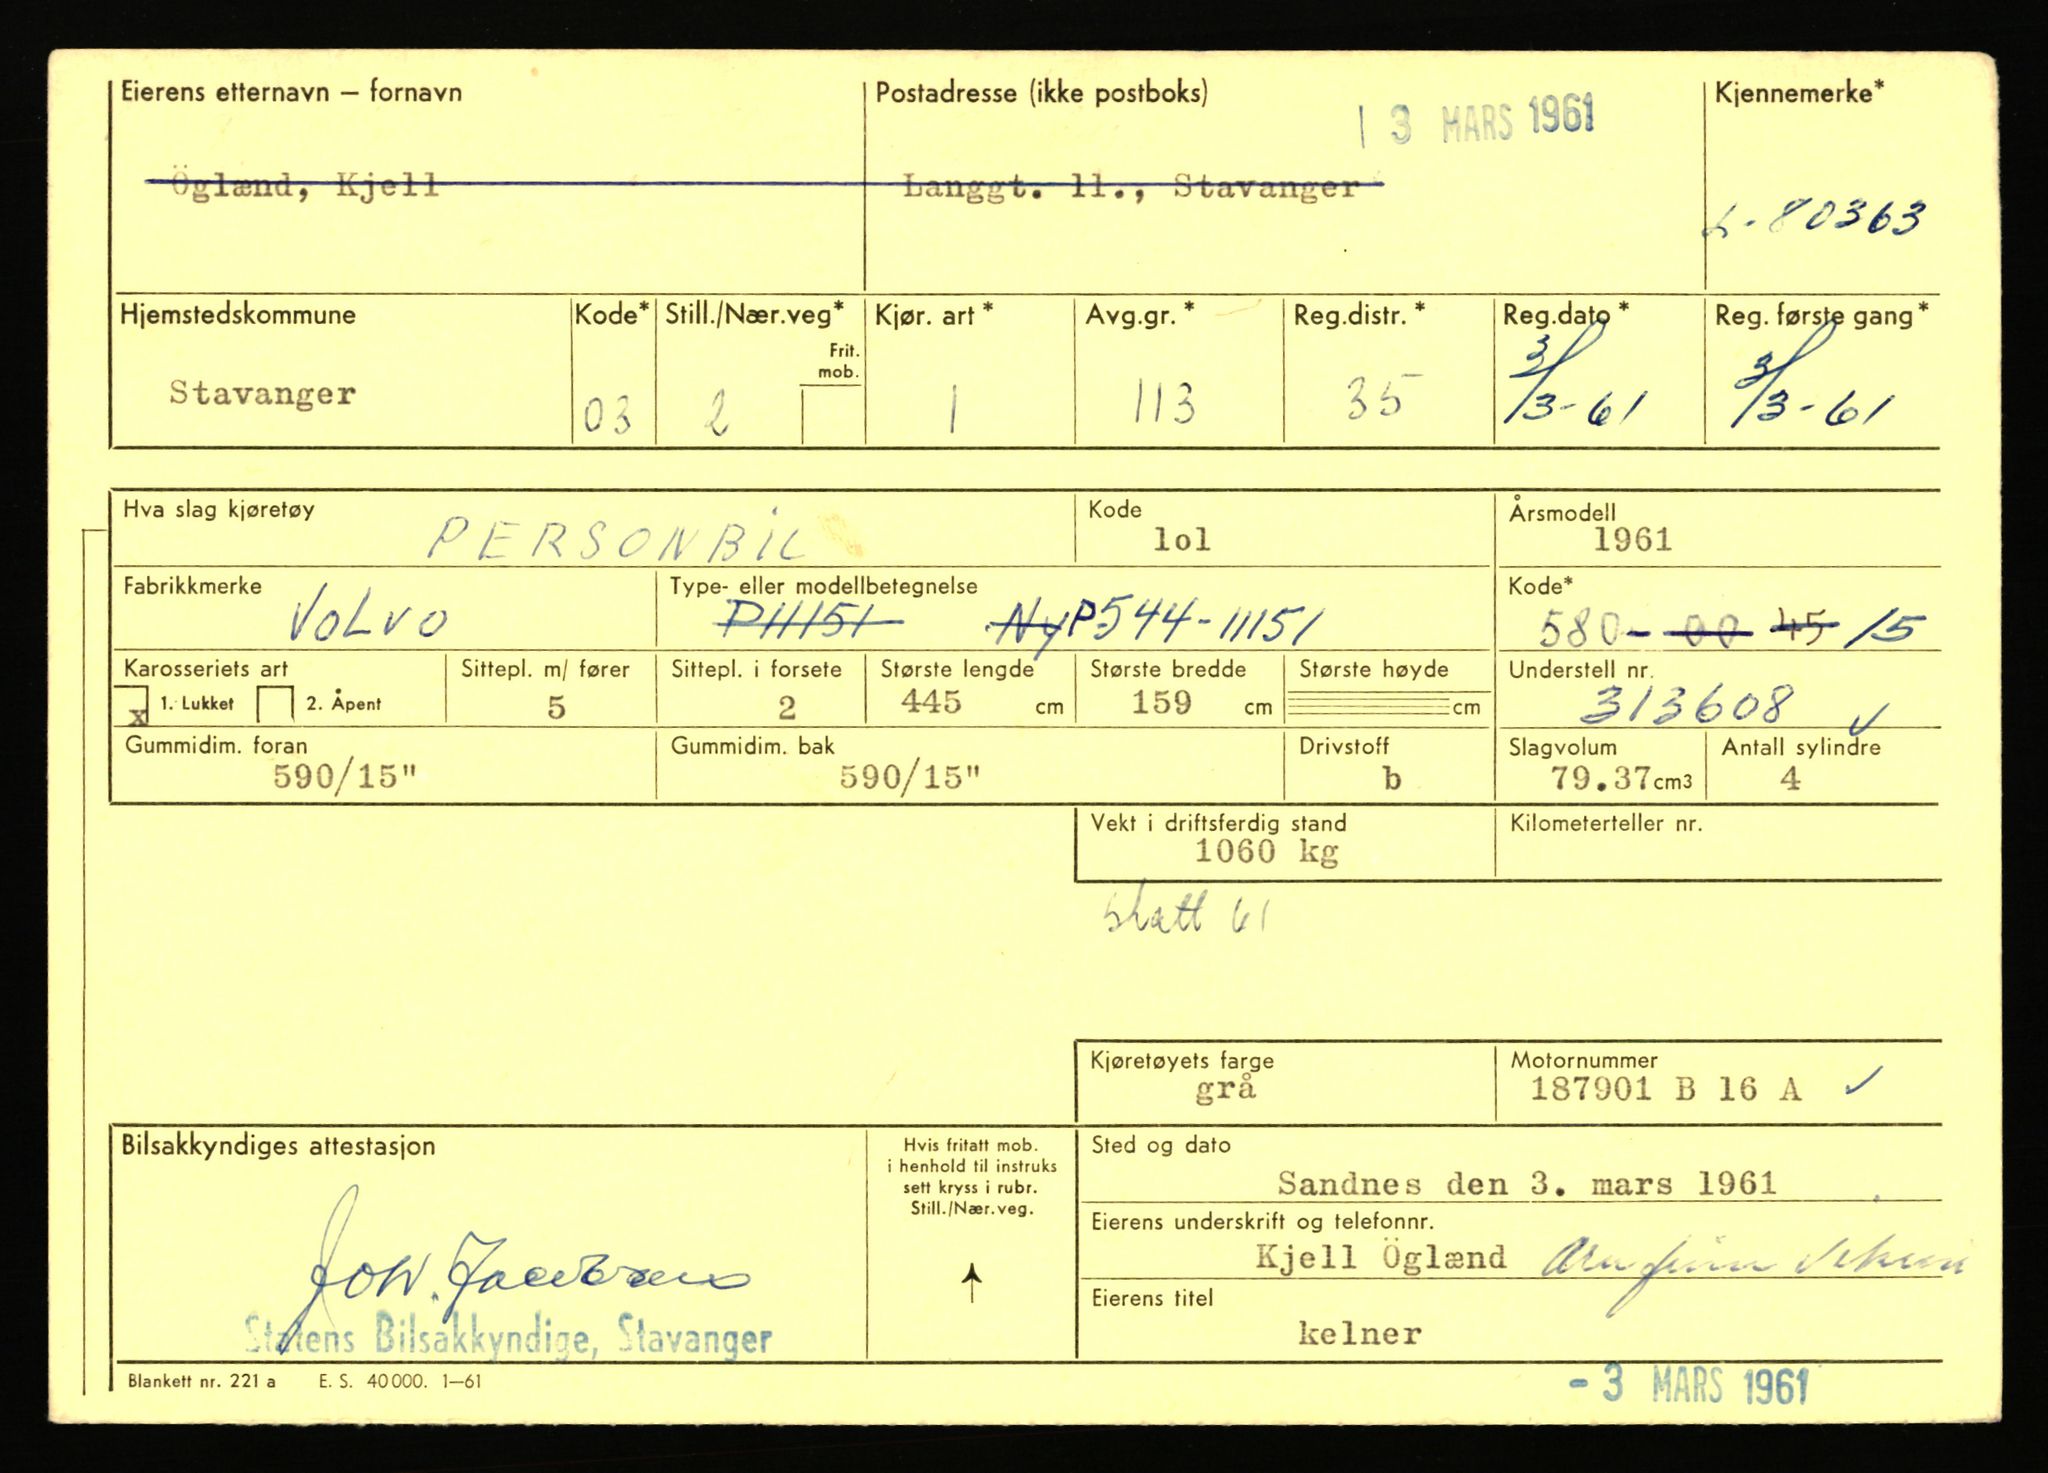 Eierens etternavn – fornavn
Postadresse (ikke postboks)
Kjennemerke*
13 MARS 1961
Öglænd, Kjell
Langgt. 11., Stavanger
L-80363
Hjemstedskommune
Kode*
Still./Nær.veg*
Frit. mob.
Kjør. art*
Avg.gr.*
Reg.distr.*
Reg.dato*
Reg. første gang*
Stavanger
03
2
1
113
35
3/3-61
3/3-61
Hva slag kjøretøy
PERSONBIL
Kode
lol
Årsmodell
1961
Fabrikkmerke
VOLVO
Type- eller modellbetegnelse
P11151 Ny P544-11151
Kode*
580- 00 45 15
Karosseriets art
x 1. Lukket 2. Åpent
Sittepl. m/ fører
5
Sittepl. i forsete
2
Største lengde
445 cm
Største bredde
159 cm
Største høyde
cm
Understell nr.
313608 ✓
Gummidim. foran
590/15"
Gummidim. bak
590/15"
Drivstoff
b
Slagvolum
79.37 cm3
Antall sylindre
4
Vekt i driftsferdig stand
1060 kg
Kilometerteller nr.
skatt 61
Kjøretøyets farge
grå
Motornummer
187901 B 16 A ✓
Bilsakkyndiges attestasjon
Statens Bilsakkyndige, Stavanger
Hvis fritatt mob.
i henhold til instruks
sett kryss i rubr.
Still./Nær.veg.
Sted og dato
Sandnes den 3. mars 1961
Eierens underskrift og telefonnr.
Kjell Öglænd
Eierens titel
kelner
Blankett nr. 221 a E. S. 40000. 1—61
- 3 MARS 1961